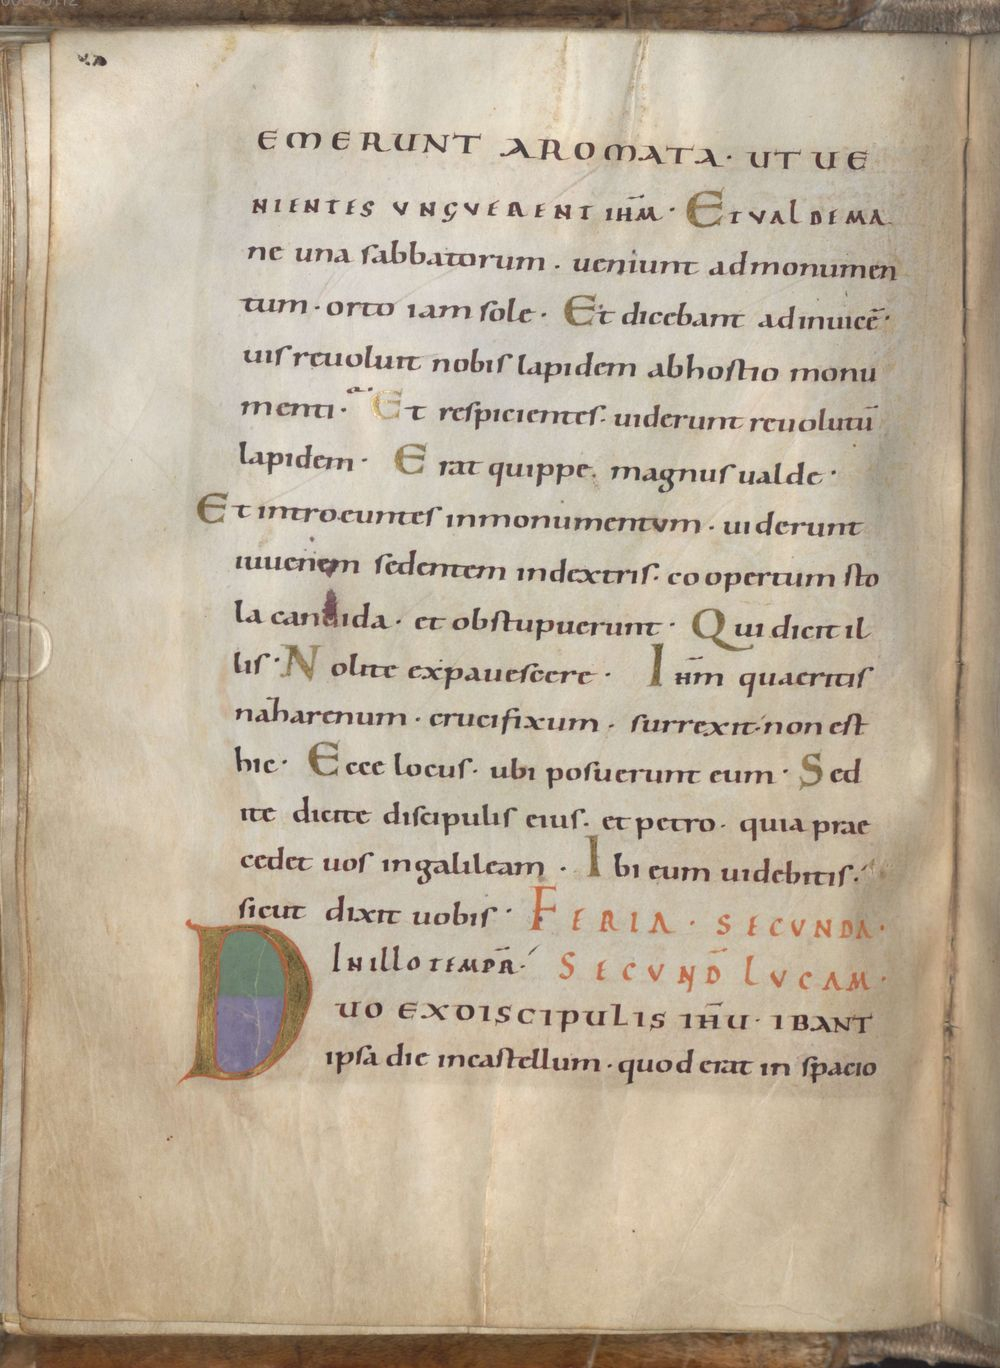 EMERUNT AROMATA · UT UE
NIENTES VNGVERENT IHM̄ · Et VALDE MA
ne una sabbatorum . ueniunt ad monumen
tum · orto iam sole · Et dicebant ad inuicē ·
uis reuoluit nobis lapidem ab hostio monu
menti · Et respicientes · uiderunt reuolutū
lapidem · Erat quippe magnus ualde ·
Et introeuntes in monumentvm · uiderunt
iuuenem sedentem in dextris · coopertum sto
la candida · et obstupuerunt · Qui dicit il
lis · Nolite expauescere · Ihm̄ quaeritis
naharenum · crucifixum · surrexit · non est
hic · Ecce locus · ubi posuerunt eum · Sed
ite dicite discipulis eius · et petro · quia prae
cedet uos in galileam · Ibi eum uidebitis ·
sicut dixit uobis · FERIA · SECVNDA ·
IN ILLO TEMPR̄ · SECVND̄ LVCAM ·
DUO EX DISCIPULIS IHŪ · IBANT
ipsa die in castellum · quod erat in spacio